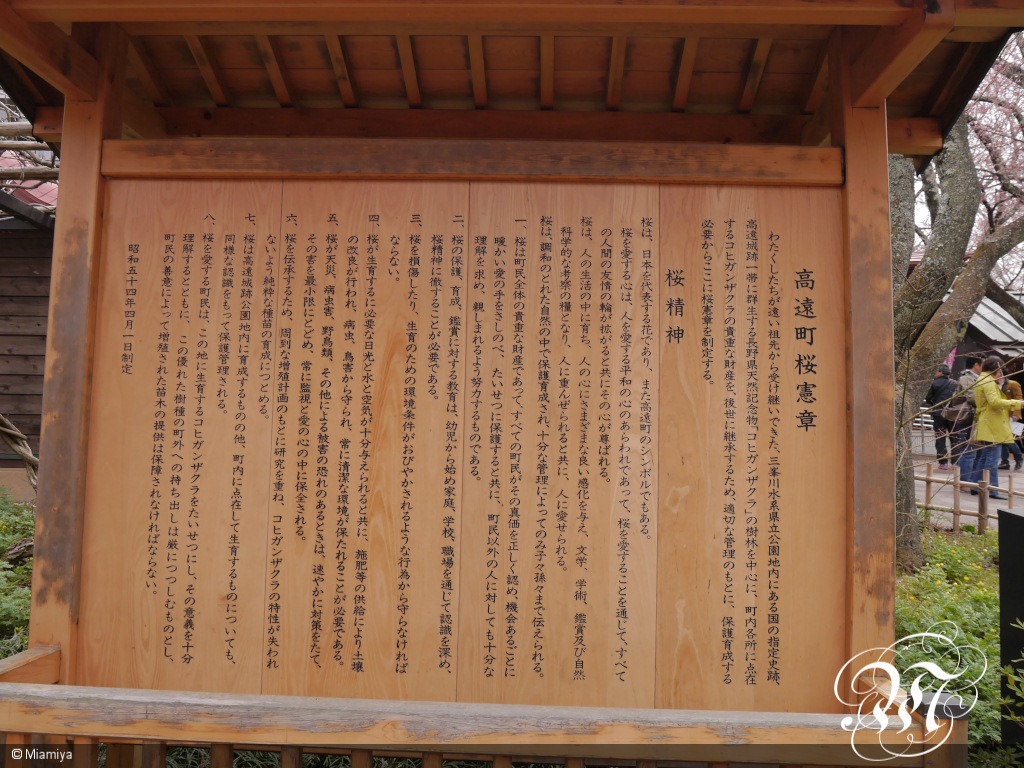 高遠町桜憲章
わたくしたちが遠い祖先から受け継いできた、三峯川水系県立公園地内にある国の指定史跡、
高遠城跡一帯に群生する長野県天然記念物「コヒガンザクラ」の樹林を中心に、町内各所に点在
するコヒガンザクラの貴重な財産を、後世に継承するため、適切な管理のもとに、保護育成する
必要からここに桜憲章を制定する。
桜精神
桜は、日本を代表する花であり、また高遠町のシンボルでもある。
桜を愛する心は、人を愛する平和の心のあらわれであって、桜を愛することを通じて、すべて
の人間の友情の輪が拡がると共にその心が尊ばれる。
桜は、人の生活の中に育ち、人の心にさまざまな良い感化を与え、文学、学術、鑑賞及び自然
科学的な考察の糧となり、人に重んぜられると共に、人に愛せられる。
桜は、調和のとれた自然の中で保護育成され、十分な管理によってのみ子々孫々まで伝えられる。
一、桜は町民全体の貴重な財産であって、すべての町民がその真価を正しく認め、機会あるごとに
暖かい愛の手をさしのべ、たいせつに保護すると共に、町民以外の人に対しても十分な
理解を求め、親しまれるよう努力するものである。
二、桜の保護、育成、鑑賞に対する教育は、幼児から始め家庭、学校、職場を通じて認識を深め、
桜精神に徹することが必要である。
三、桜を損傷したり、生育のための環境条件がおびやかされるような行為から守らなければ
ならない。
四、桜が生育するに必要な日光と水と空気が十分与えられると共に、施肥等の供給により土壌
の改良が行われ、病虫、鳥害から守られ、常に清潔な環境が保たれることが必要である。
五、桜が天災、病虫害、野鳥類、その他による被害の恐れのあるときは、速やかに対策をたて、
その害を最小限にとどめ、常に監視と愛の心の中に保全される。
六、桜を伝承するため、周到な増殖計画のもとに研究を重ね、コヒガンザクラの特性が失われ
ないよう純粋な種苗の育成につとめる。
七、桜は高遠城跡公園地内に育成するものの他、町内に点在して生育するものについても、
同様な認識をもって保護管理される。
八、桜を愛する町民は、この地に生育するコヒガンザクラをたいせつにし、その意義を十分
理解するとともに、この優れた樹種の町外への持ち出しは厳につつしむものとし、
町民の善意によって増殖された苗木の提供は保障されなければならない。
昭和五十四年四月一日制定
© Miamiya
M